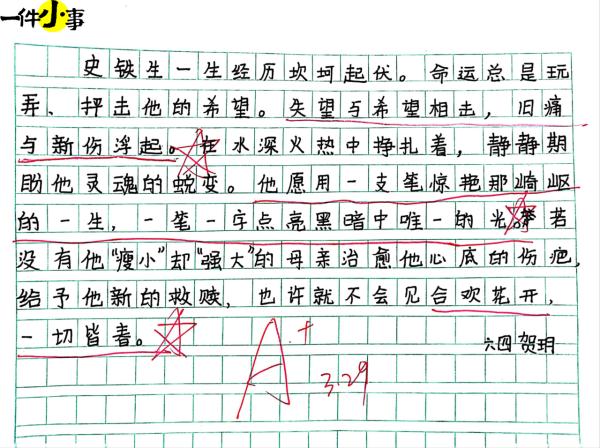 一件小事
史铁生一生经历坎坷起伏。命运总是玩
弄、抨击他的希望。失望与希望相击，旧痛
与新伤浮起。在水深火热中挣扎着，静静期
盼他灵魂的蜕变。他愿用一支笔惊艳那崎岖
的一生，一笔一字点亮黑暗中唯一的光。若
没有他“瘦小”却“强大”的母亲治愈他心底的伤疤，
给予他新的救赎，也许就不会见合欢花开，
一切皆春。
六四 贺玥
A+
3.29